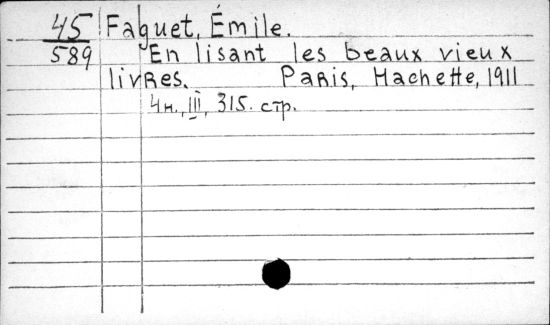 45 Faguet, Émile.
589 En lisant les beaux vieux
livres. Paris, Hachette, 1911
4н., III, 315. стр.